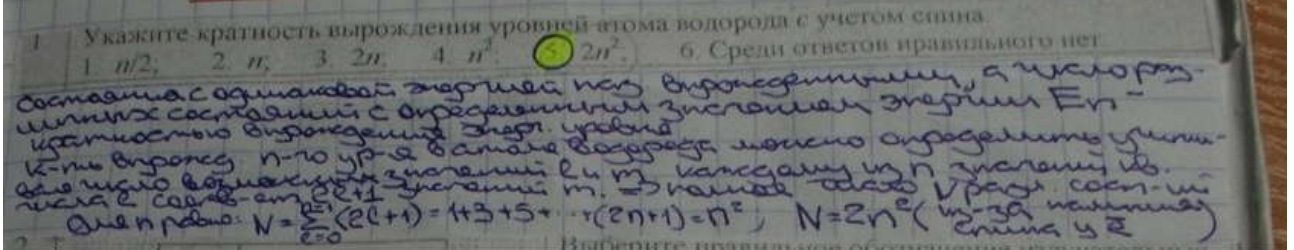 1 Укажите кратность вырождения уровней атома водорода с учетом спина.
1. n/2; 2. n; 3. 2n; 4. n²; 5. 2n²; 6. Среди ответов правильного нет
Состояния с одинаковой энергией наз вырожденными, а число раз-
личных состояний с определенным значением энергии En -
кратностью вырождения энерг. уровня
К-ть вырожд n-го ур-я в атоме водорода можно определить
число возможных значений l и m каждому из n значений кв.
числа l соотв-ет 2l+1 значений m. => полное число разл. сост-ий
для n равно: N = Σ (2l+1) = 1+3+5+...+(2n+1) = n², N=2n² (из-за наличия
спина у ē)
2
Выберите правильное обозначение